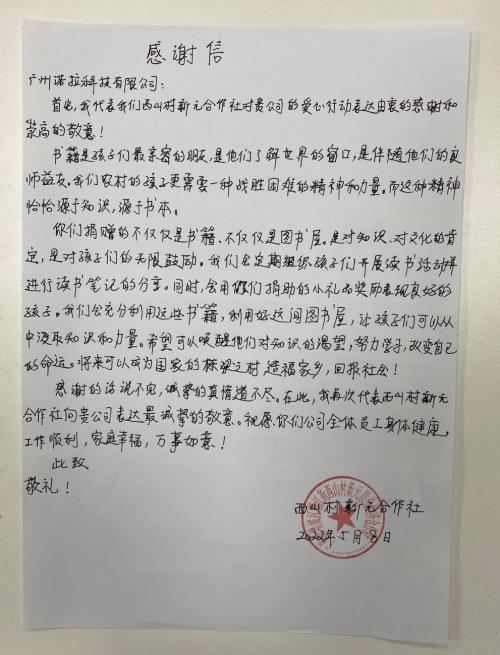 感谢信
广州诺拉科技有限公司：
首先，我代表我们西山村新元合作社对贵公司的爱心行动表达由衷的感谢和
崇高的敬意！
书籍是孩子们最亲密的朋友，是他们了解世界的窗口，是伴随他们的良
师益友。我们农村的孩子更需要一种战胜困难的精神和力量。而这种精神
恰恰源于知识，源于书本。
你们捐赠的不仅仅是书籍、不仅仅是图书屋。是对知识、对文化的肯
定，是对孩子们的无限鼓励。我们会定期组织孩子们开展读书活动并
进行读书笔记的分享。同时，会用你们捐助的小礼品奖励表现良好的
孩子。我们会充分利用这些书籍，利用好这间图书屋，让孩子们可以从
中汲取知识和力量。希望可以唤醒他们对知识的渴望，努力学习，改变自己
的命运。将来可以成为国家的栋梁之材 造福家乡，回报社会！
感谢的话说不完，诚挚的真情道不尽。在此，我再次代表西山村新元
合作社向贵公司表达最诚挚的敬意。祝愿你们公司全体员工身体健康，
工作顺利，家庭幸福，万事如意！
此致
敬礼！
西山村新元合作社
2022年5月8日